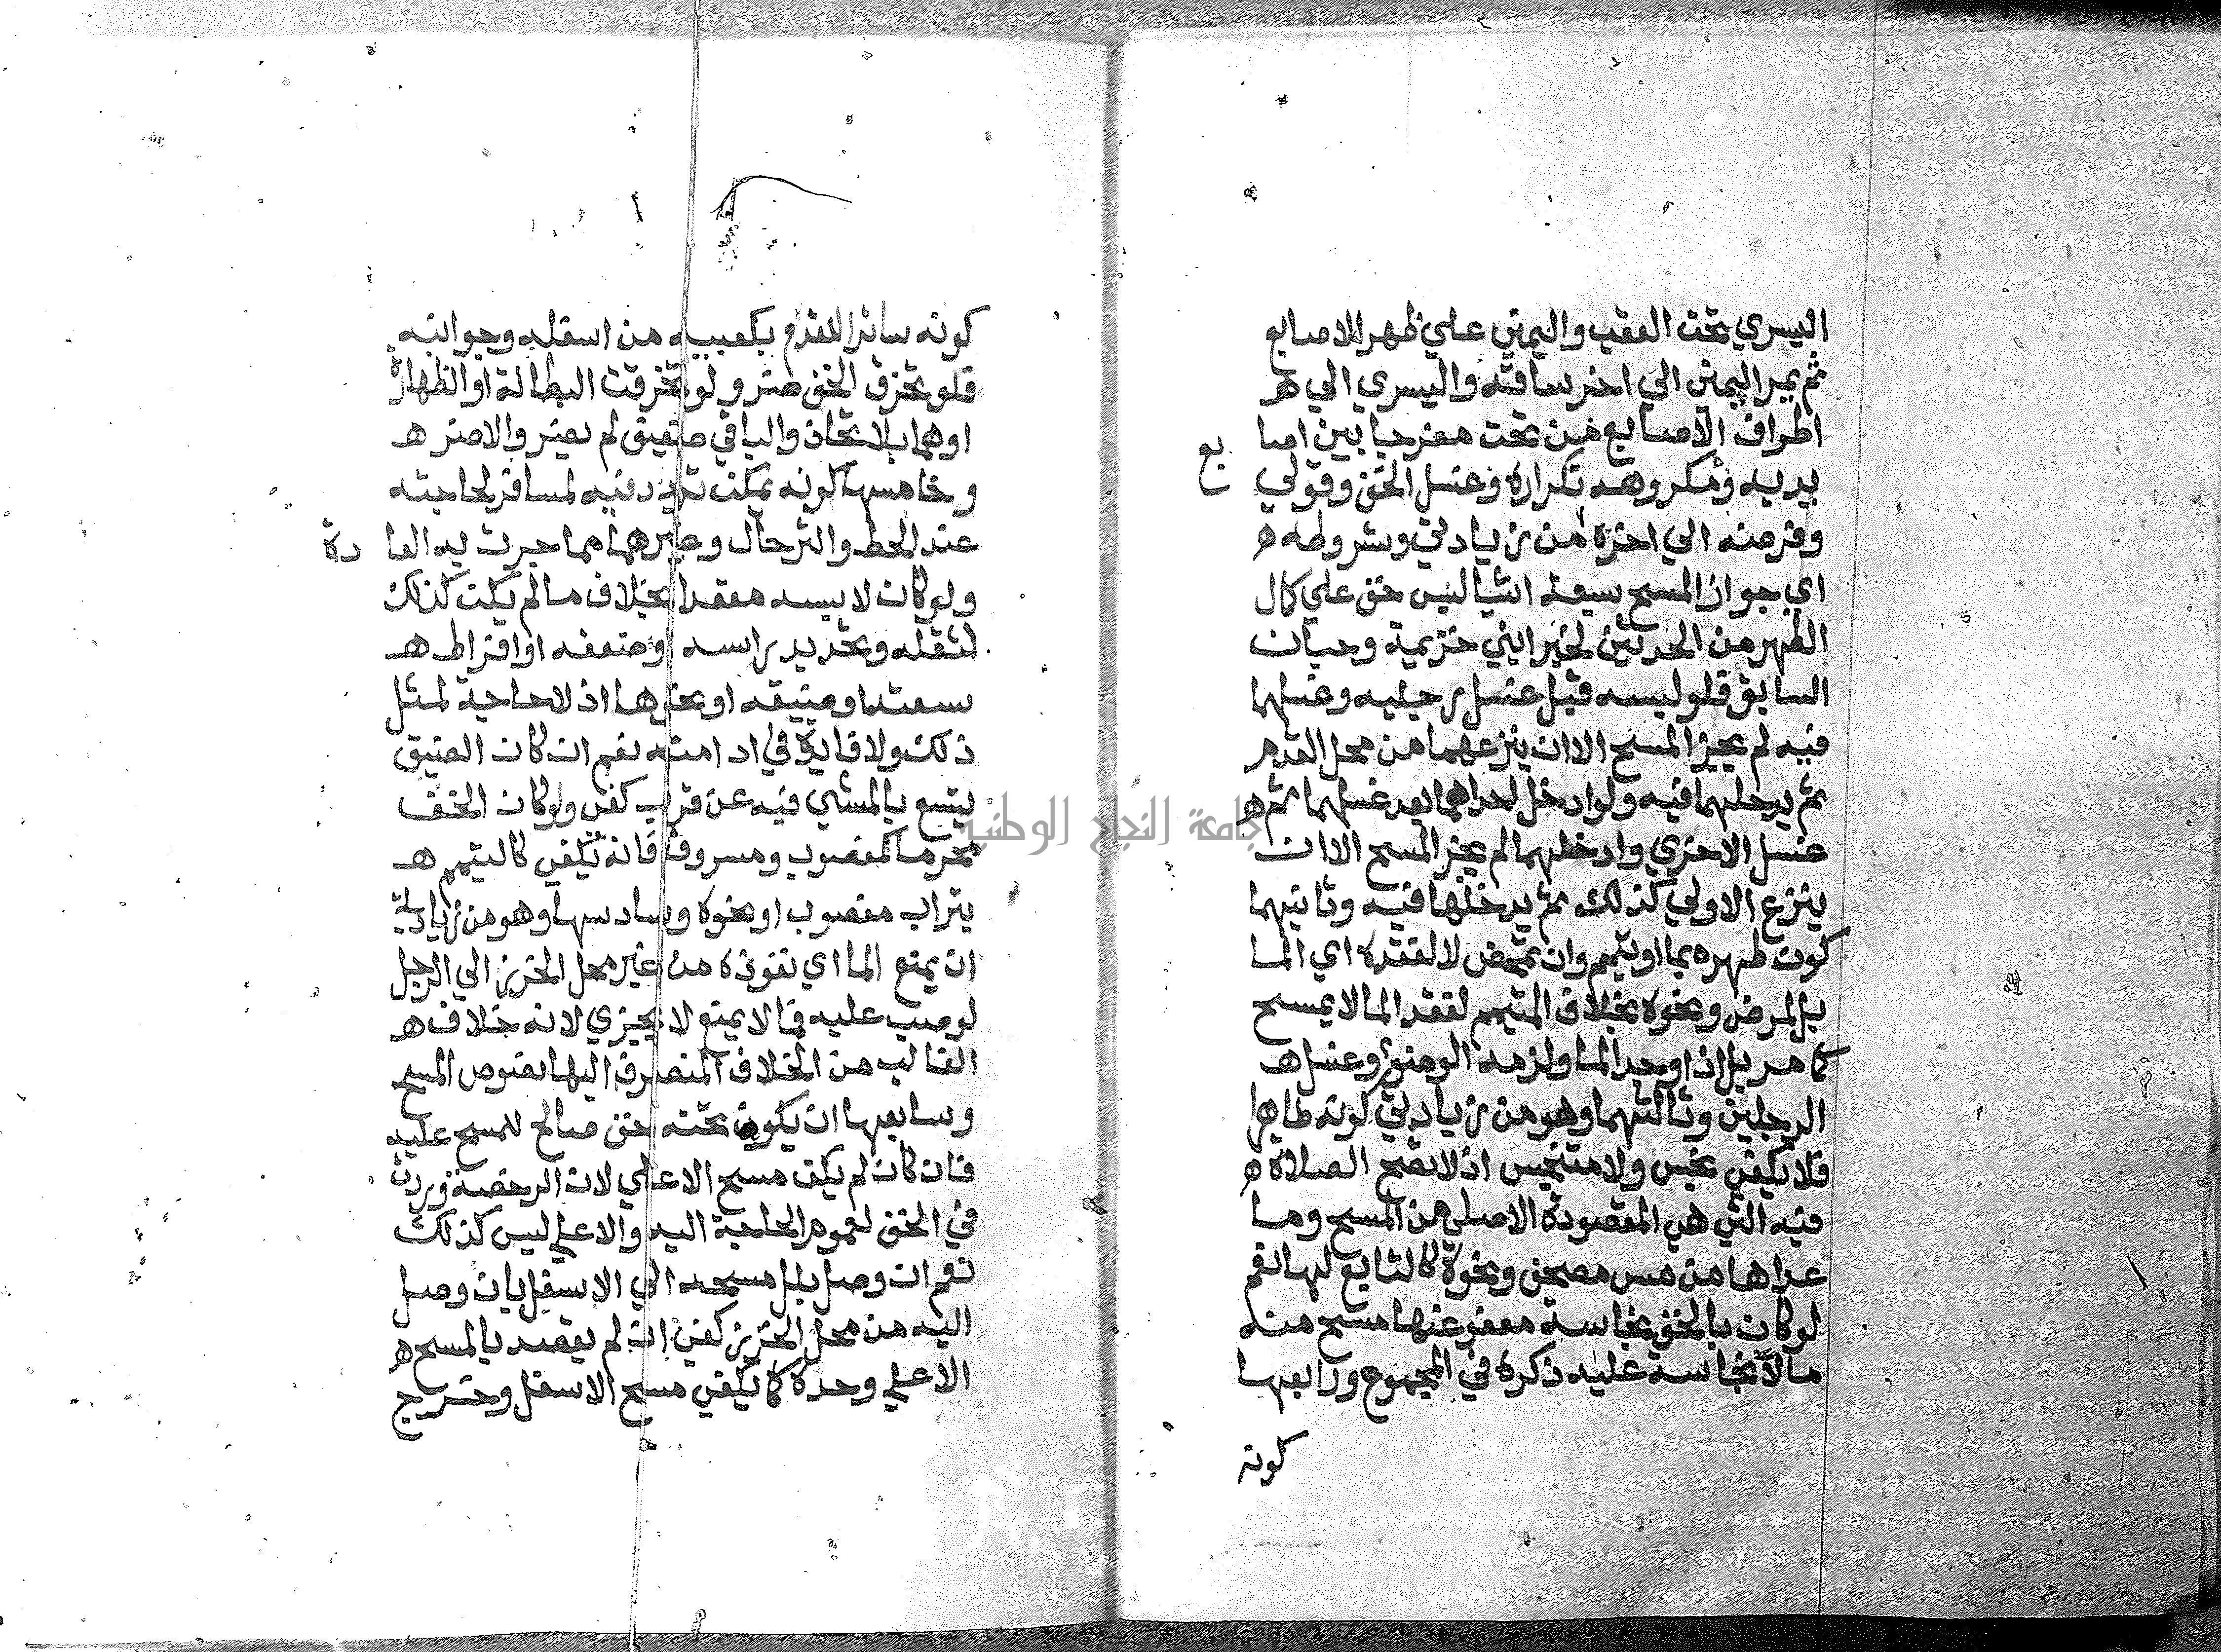 اليسري تحت العقب واليمني علي ظهر الاصابع
ثم يمر اليمني الي اخر ساقه واليسري الي ه
اطراف الاصابع من تحت مفرجا بين اصا بع
يديه ومكروهه تكراره وغسل الخف وقولي
وفرضه الي اخره من زيادتي وشروطه ه
اي جواز المسح سبعة اشيا لبس خف علي كمال
الطهر من الحدثين لخبر ابني خزيمة وحبان
السابق فلو لبسه قبل غسل رجليه وغسلهما
فيه لم يجز المسح الا ان ينزعهما من محل القدم
ثم يدخلهما فيه ولو ادخل احداهما بعد غسلها ثم ه
غسل الاخري وادخلها لم يجز المسح الا ان
ينزع الاولي كذلك ثم يدخلها فيه وثانيهما
كون طهره بما او تيمم وان تمحض لا لفقده اي الما
بل لمرض ونحوه بخلاف المتيمم لفقد الما لا يمسح
كما مر بل اذا وجد الما ولزمه الوضوء وغسل ه
الرجلين وثالثهما وهو من زيادتي كونه طاهرا
فلا يكفي نجس ولا متنجس اذ لا تصح الصلاة ه
فيه التي هي المقصودة الاصلي من المسح وما
عداها من مس مصحف ونحوه كالتابع لها نعم
لو كان بالخف نجاسة معفو عنها مسح منه
مالا نجاسة عليه ذكره في المجموع ورابعها
كونه
كونه ساتر القدم بكعبيه من اسفله وجوانبه
فلو تخرق الخف ضر ولو تخرقت البطانة او الظهارة
او هما بلا تحاذ والباقي صفيق لم يضر والا ضر ه
وخامسها كونه يمكن تردد فيه لمسافر لحاجته
عند الحط والترحال وغيرهما مما جرت به العا دة
ولو كان لابسه مقعدا بخلاف ما لم يكن كذلك
لثقله وتحديد راسه او ضعفه او افراط ه
سعته او ضيقه او نحوها اذ لا حاجة لمثل
ذلك ولا فايدة في ادامته نعم ان كان الضيق
يتسع بالمشي فيه عن قرب كفي ولو كان الخف
محرما كمغصوب ومسروق فانه يكفي كالتيمم ه
بتراب مغصوب او نحوه وسادسها وهو من زيادتي
ان يمنع الما اي نفوذه من غير محل الخرز الي الرجل
لو صب عليه فما لا يمنع لا يجزي لانه خلاف ه
الغالب من الخفاف المنصرف اليها نصوص المسح
وسابعها ان يكون تحته خف صالح للمسح عليه
فان كان لم يكف مسح الاعلي لان الرخصة وردت
في الخف لعموم الحاجة اليه والاعلي ليس كذلك
نعم ان وصل بلل مسحه الي الاسفل بان وصل
اليه من محل الخرز كفي ان لم يقصد بالمسح ه
الاعلي وحده كما يكفي مسح الاسفل وخرج
جامعة النجاح الوطنية